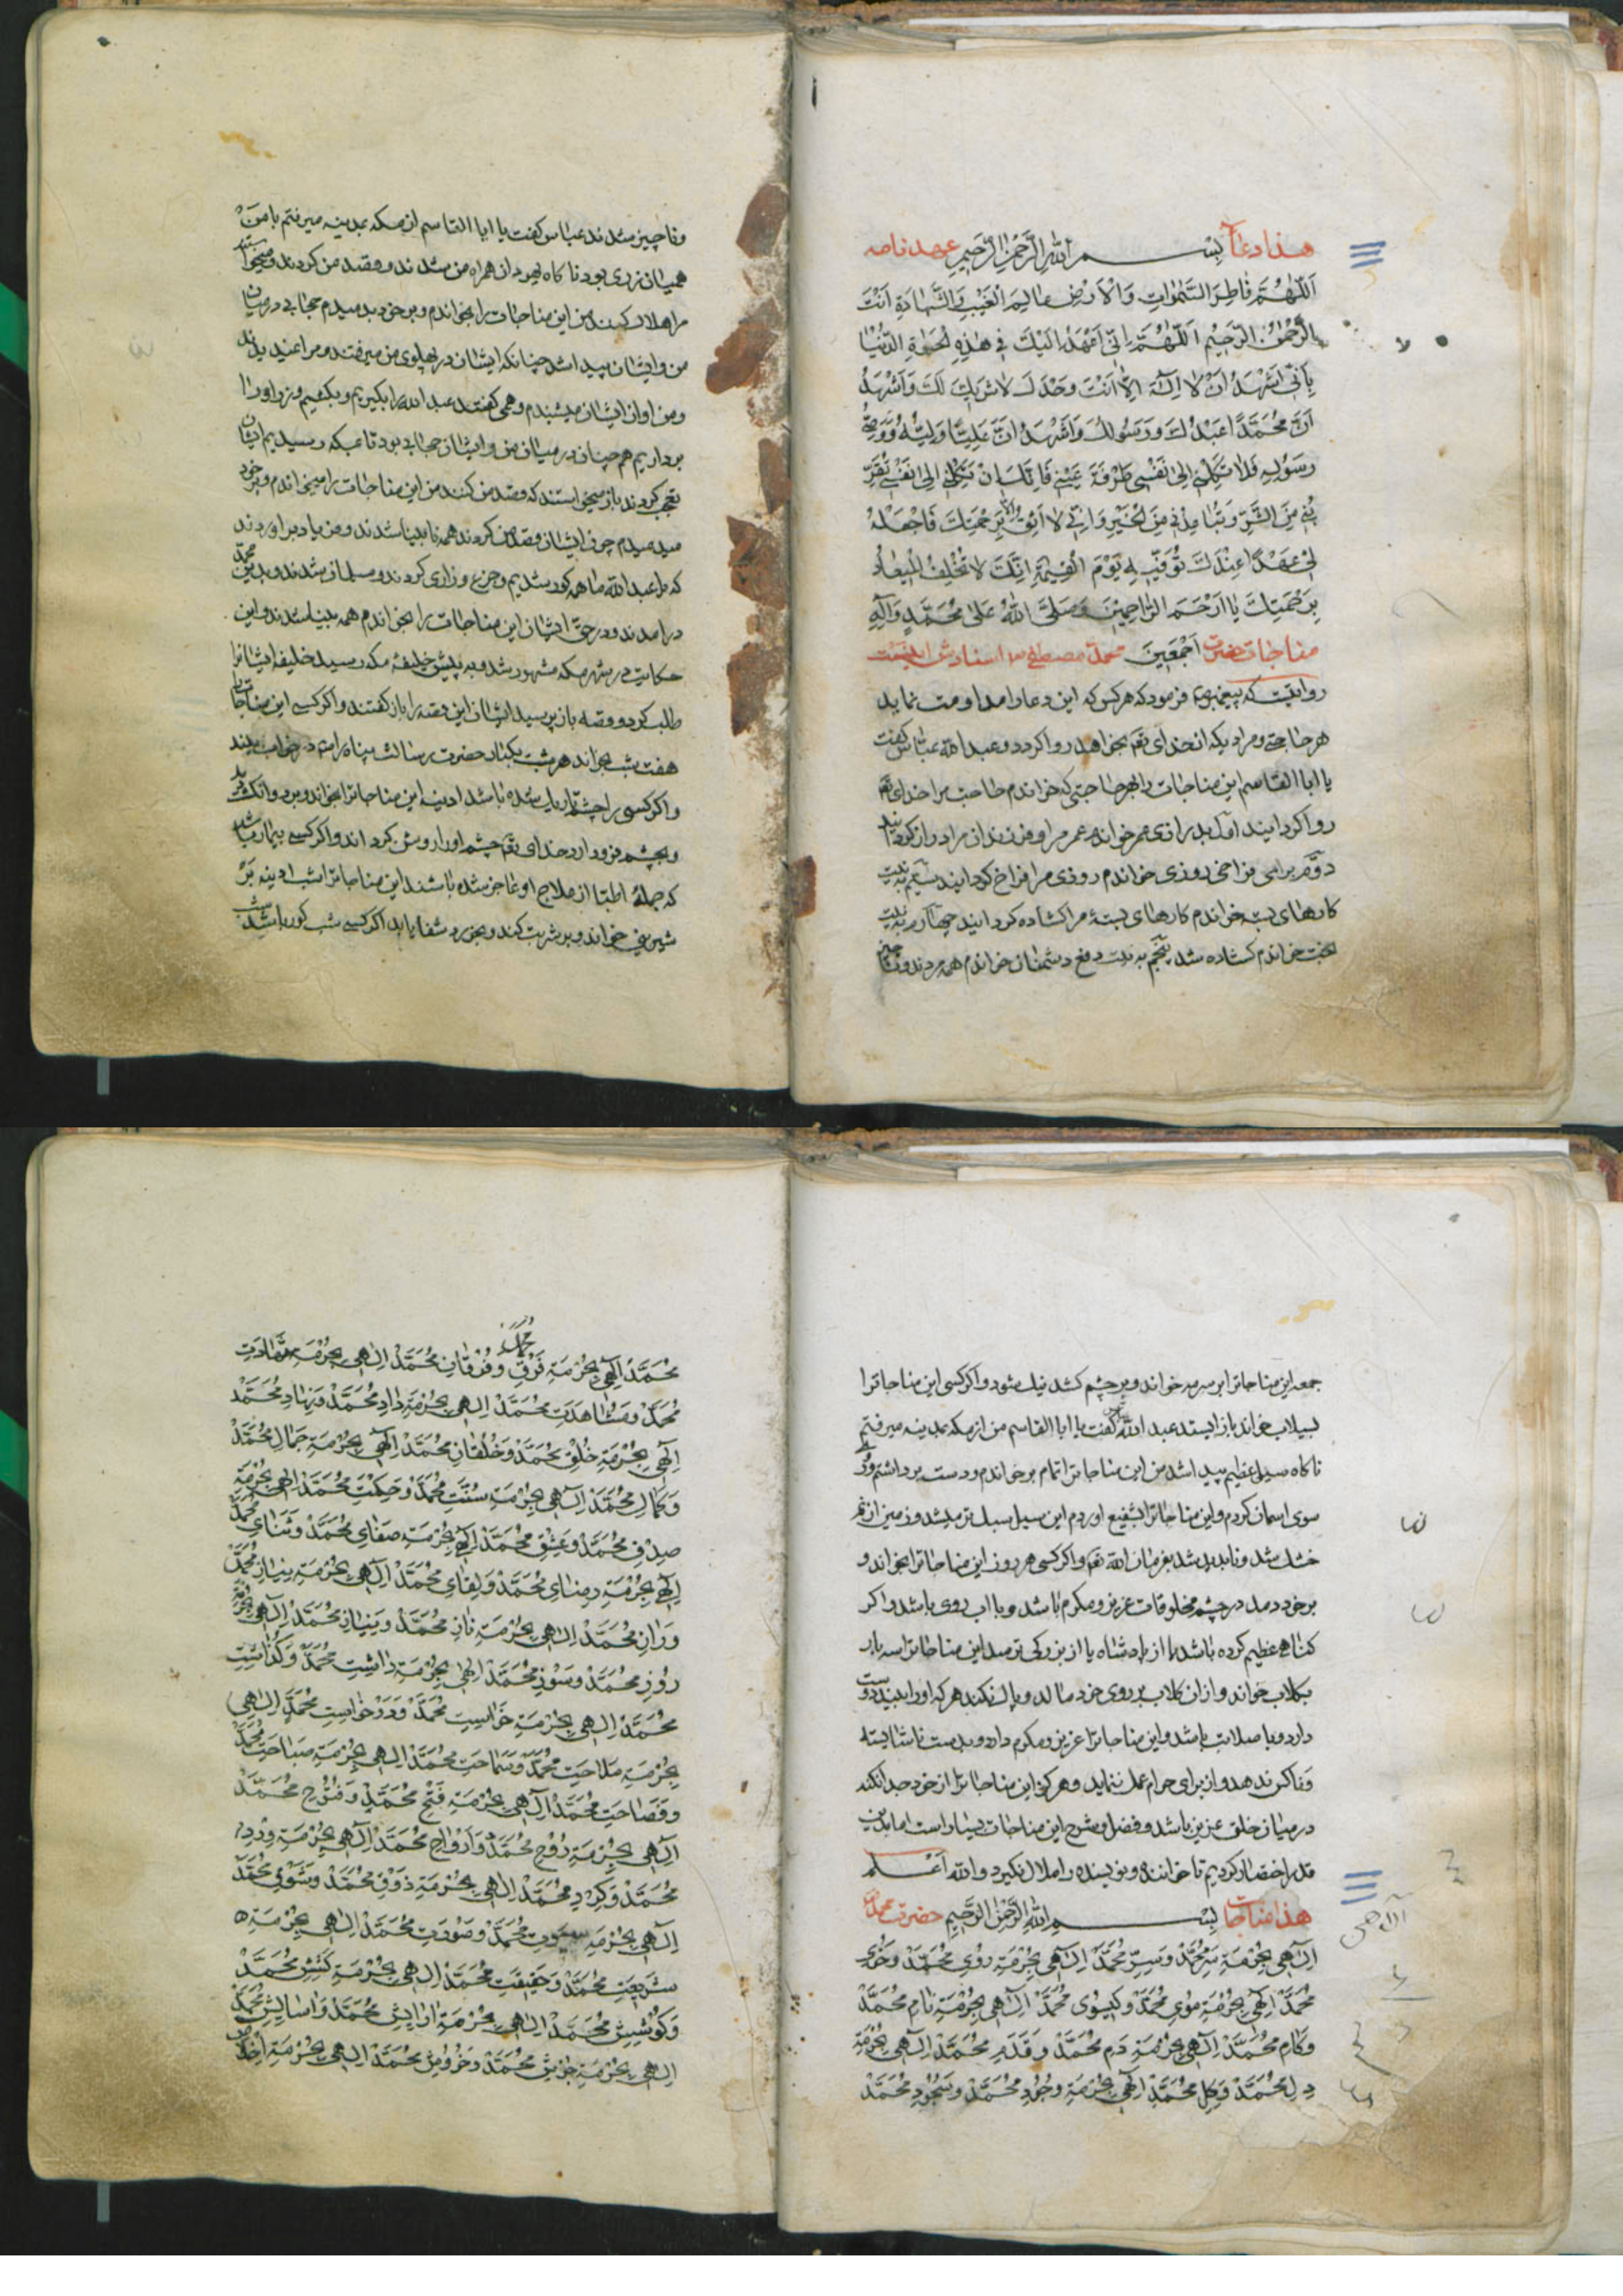 هذا دعا بسم الله الرحمن الرحیم عهد نامه
اَللّٰهُمَّ فَاطِرَ السَّمٰوَاتِ وَالْاَرْضِ عَالِمَ الْغَیْبِ وَالشَّهَادَةِ اَنْتَ
الرَّحْمٰنُ الرَّحِیْمُ اَللّٰهُمَّ اِنّی اَعْهَدُ اِلَیْكَ فِی هٰذِهِ الْحَیٰوةِ الدُّنْیَا
بِاَنّی اَشْهَدُ اَنْ لَا اِلٰهَ اِلَّا اَنْتَ وَحْدَكَ لَا شَرِیكَ لَكَ وَاَشْهَدُ
اَنَّ مُحَمَّدًا عَبْدُكَ وَرَسُولُكَ وَاَشْهَدُ اَنَّ عَلِیًّا وَلِیُّهُ وَوَصِیُّ
رَسُولِهِ فَلَا تَكِلْنِی اِلٰی نَفْسِی طَرْفَةَ عَیْنٍ فَاِنَّكَ اِنْ تَكِلْنِی اِلٰی نَفْسِی تُقَرِّ
بْنِی مِنَ الشَّرِّ وَتُبَاعِدْنِی مِنَ الْخَیْرِ وَاِنّی لَا اَثِقُ اِلَّا بِرَحْمَتِكَ فَاجْعَلْ
لِی عَهْدًا عِنْدَكَ تُوَفّیهِ یَوْمَ الْقِیٰمَةِ اِنَّكَ لَا تُخْلِفُ الْمِیعَادَ
بِرَحْمَتِكَ یَا اَرْحَمَ الرَّاحِمِینَ وَصَلَّی اللهُ عَلٰی مُحَمَّدٍ وَآلِهِ
اَجْمَعِینَ مناجات حضرت محمد مصطفی اسنادش اینست
روایتست که پیغمبر فرمود که هرکس که این دعا را مداومت نماید
هر حاجتی و مرادیکه از خدای تع بخواهد روا کردد و عبدالله عباس کفت
یا ابا القاسم این مناجات را بهر حاجتی که خواندم حاجت مرا خدای تع
روا کردانید اول بدرازی عمر خواندم عمر مرا و فرزندان مرا دراز کردانید
دوم برای فراخی روزی خواندم روزی مرا فراخ کردانید سیم به نیت
کارهای بسته خواندم کارهای بستهٔ مرا کشاده کردانید چهارم به نیت
بخت خواندم کشاده شد پنجم به نیت دفع دشمنان خواندم همه مردند و فنا
وناچیز شدند عباس کفت یا ابا القاسم از مکه بمدینه میرفتم با من
همیان زری بود ناکاه یهودان همراه من شدند و قصد من کردند و میخواستند
مرا هلاك کنند من این مناجات را بخواندم و بر خود بدمیدم حجابی در میان
من و ایشان پیدا شد چنانکه ایشان در پهلوی من میرفتند و مرا نمیدیدند
و من اواز ایشان میشنیدم و همی کفتند عبدالله را بکیریم و بکشیم و زر او را
برداریم همچنان در میان من و ایشان حجابی بود تا بمکه رسیدیم ایشان
تعجب کردند باز میخواستند که قصد من کنند من این مناجات را میخواندم و بر خود
میدمیدم چون ایشان قصد من کردند همه نابینا شدند و فریاد براوردند
که یا عبدالله ما همه کور شدیم و جزع و زاری کردند و مسلمان شدند و بدین محمد
درامدند و در حق ایشان این مناجات را بخواندم همه بینا شدند و این
حکایت در شهر مکه مشهور شد و به پیش خلیفهٔ مکه رسید خلیفه ایشانرا
طلب کرد و قصه باز پرسید ایشان این قصه را باز کفتند و اکر کسی این مناجات را
هفت شب بخواند هر شب یکبار حضرت رسالت پناه را در خواب بیند
واکر کسی را چشم تاریك شده باشد ادینه این مناجاترا بخواند و بر دو انکشت دمد
و بچشم فرود ارد خدای تع چشم او را روشن کرداند و اکر کسی بیمار باشد
که جملهٔ اطبا از علاج او عاجز شده باشند این مناجاترا شب ادینه بر
شیرینی خواند و بر شربت کند و بخورد شفا یابد اکر کسی شب کور باشد شب
جمعه این مناجاترا بر سرمه خواند و بر چشم کشد نیك شود و اکر کسی این مناجاترا
بسیلاب خواند باز ایستد عبدالله عباس کفت یا ابا القاسم من از مکه بمدینه میرفتم
ناکاه سیل عظیم پیدا شد من این مناجاترا تمام برخواندم و دست برداشتم و رو
سوی اسمان کردم و این مناجاترا شفیع اوردم این سیل سبك تر میشد و زمین از نم
خشك شد و ناپدید شد بفرمان الله تع و اکر کسی هر روز این مناجاترا بخواند و
بر خود دمد در چشم مخلوقات عزیز و مکرم باشد و با اب روی باشد و اکر
کناهی عظیم کرده باشد یا از پادشاه یا از بزرکی ترسد این مناجاترا سه بار
بکلاب خواند و از ان کلاب بر روی خود مالد و پاك نکند هر که او را بیند دوست
دارد و با صلابت باشد و این مناجاترا عزیز و مکرم دارد و بدست ناشایسته
و ناکس ندهد و از برای حرام عمل ننماید و هر که این مناجاترا از خود جدا نکند
در میان خلق عزیز باشد و فضل و شرح این مناجات بسیار است اما بدین
قدر اختصار کردیم تا خواننده و نویسنده را ملال نکیرد والله اعلم
هذا مناجات بسم الله الرحمن الرحیم حضرت محمد
اِلٰهِی بِحُرْمَةِ سِرِّ مُحَمَّدْ وَسِرِّ مُحَمَّدْ اِلٰهِی بِحُرْمَةِ رُوی مُحَمَّدْ وَخُوی
مُحَمَّدْ اِلٰهِی بِحُرْمَةِ مُوی مُحَمَّدْ وَکیسُوی مُحَمَّدْ اِلٰهِی بِحُرْمَةِ نَامِ مُحَمَّدْ
وَکَامِ مُحَمَّدْ اِلٰهِی بِحُرْمَةِ دَمِ مُحَمَّدْ وَقَدَمِ مُحَمَّدْ اِلٰهِی بِحُرْمَةِ
دِلِ مُحَمَّدْ وَکِلِ مُحَمَّدْ اِلٰهِی بِحُرْمَةِ وُجُودِ مُحَمَّدْ وَسُجُودِ مُحَمَّدْ
مُحَمَّدْ اِلٰهِی بِحُرْمَةِ فَوْقِ مُحَمَّدْ وَفُرْقَانِ مُحَمَّدْ اِلٰهِی بِحُرْمَةِ شَهَادَتِ
مُحَمَّدْ وَمُشَاهَدَتِ مُحَمَّدْ اِلٰهِی بِحُرْمَةِ دَادِ مُحَمَّدْ وَنِهَادِ مُحَمَّدْ
اِلٰهِی بِحُرْمَةِ خُلْقِ مُحَمَّدْ وَخُلْقَانِ مُحَمَّدْ اِلٰهِی بِحُرْمَةِ جَمَالِ مُحَمَّدْ
وَکَمَالِ مُحَمَّدْ اِلٰهِی بِحُرْمَةِ سُنَّتِ مُحَمَّدْ وَحِکْمَتِ مُحَمَّدْ اِلٰهِی بِحُرْمَةِ
صِدْقِ مُحَمَّدْ وَعِشْقِ مُحَمَّدْ اِلٰهِی بِحُرْمَةِ صَفَای مُحَمَّدْ وَثَنَای مُحَمَّدْ
اِلٰهِی بِحُرْمَةِ رِضَای مُحَمَّدْ وَلِقَای مُحَمَّدْ اِلٰهِی بِحُرْمَةِ نِیَازِ مُحَمَّدْ
وَرَازِ مُحَمَّدْ اِلٰهِی بِحُرْمَةِ نَازِ مُحَمَّدْ وَنِیَازِ مُحَمَّدْ اِلٰهِی بِحُرْمَةِ
رُوزِ مُحَمَّدْ وَسُوزِ مُحَمَّدْ اِلٰهِی بِحُرْمَةِ دَاشتِ مُحَمَّدْ وَکُذَاشتِ
مُحَمَّدْ اِلٰهِی بِحُرْمَةِ خَواستِ مُحَمَّدْ وَدَرْخَواستِ مُحَمَّدْ اِلٰهِی
بِحُرْمَةِ مَلَاحَتِ مُحَمَّدْ وَسَمَاحَتِ مُحَمَّدْ اِلٰهِی بِحُرْمَةِ صَبَاحَتِ مُحَمَّدْ
وَفَصَاحَتِ مُحَمَّدْ اِلٰهِی بِحُرْمَةِ فَتْحِ مُحَمَّدْ وَفُتُوحِ مُحَمَّدْ
اِلٰهِی بِحُرْمَةِ رُوحِ مُحَمَّدْ وَاَرْوَاحِ مُحَمَّدْ اِلٰهِی بِحُرْمَةِ وِرْدِ
مُحَمَّدْ وَکِرْدِ مُحَمَّدْ اِلٰهِی بِحُرْمَةِ ذَوْقِ مُحَمَّدْ وَشَوْقِ مُحَمَّدْ
اِلٰهِی بِحُرْمَةِ سیرت مُحَمَّدْ وَصُورَتِ مُحَمَّدْ اِلٰهِی بِحُرْمَةِ
شَرِیعَتِ مُحَمَّدْ وَحَقِیقَتِ مُحَمَّدْ اِلٰهِی بِحُرْمَةِ کَشِشِ مُحَمَّدْ
وَکُوشِشِ مُحَمَّدْ اِلٰهِی بِحُرْمَةِ اَرَایِشِ مُحَمَّدْ وَاَسَایِشِ مُحَمَّدْ
اِلٰهِی بِحُرْمَةِ جُوشِ مُحَمَّدْ وَخُرُوشِ مُحَمَّدْ اِلٰهِی بِحُرْمَةِ اِخْلَاصِ